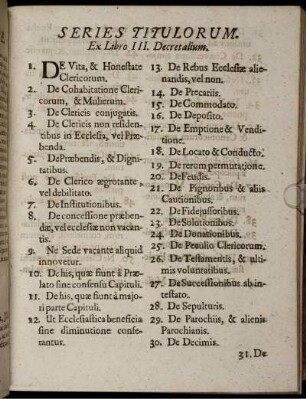 SERIES TITULORUM.
Ex Libro III. Decretalium.
1. DE Vita, & Honestate
Clericorum.
2. De Cohabitatione Cleri-
corum, & Mulierum.
3. De Clericis conjugatis.
4. De Clericis non residen-
tibus in Ecclesia, vel Præ-
benda.
5. De Præbendis, & Digni-
tatibus.
6. De Clerico ægrotante,
vel debilitato.
7. De Institutionibus.
8. De concessione præben-
dæ, vel ecclesiæ non vacan-
tis.
9. Ne Sede vacante aliquid
innovetur.
10. De his, quæ fiunt à Præ-
lato sine consensu Capituli.
11. De his, quæ fiunt à majo-
ri parte Capituli.
12. Ut Ecclesiastica beneficia
sine diminutione confe-
rantur.
13. De Rebus Ecclesiæ alie-
nandis, vel non.
14. De Precariis.
15. De Commodato.
16. De Deposito.
17. De Emptione & Vendi-
tione.
18. De Locato & Conducto.
19. De rerum permutatione.
20. De Feudis.
21. De Pignoribus & aliis
Cautionibus.
22. De Fidejussoribus.
23. De Solutionibus.
24. De Donationibus.
25. De Peculio Clericorum.
26. De Testamentis, & ulti-
mis voluntatibus.
27. De Successionibus ab in-
testato.
28. De Sepulturis.
29. De Parochiis, & alienis
Parochianis.
30. De Decimis.
31. De